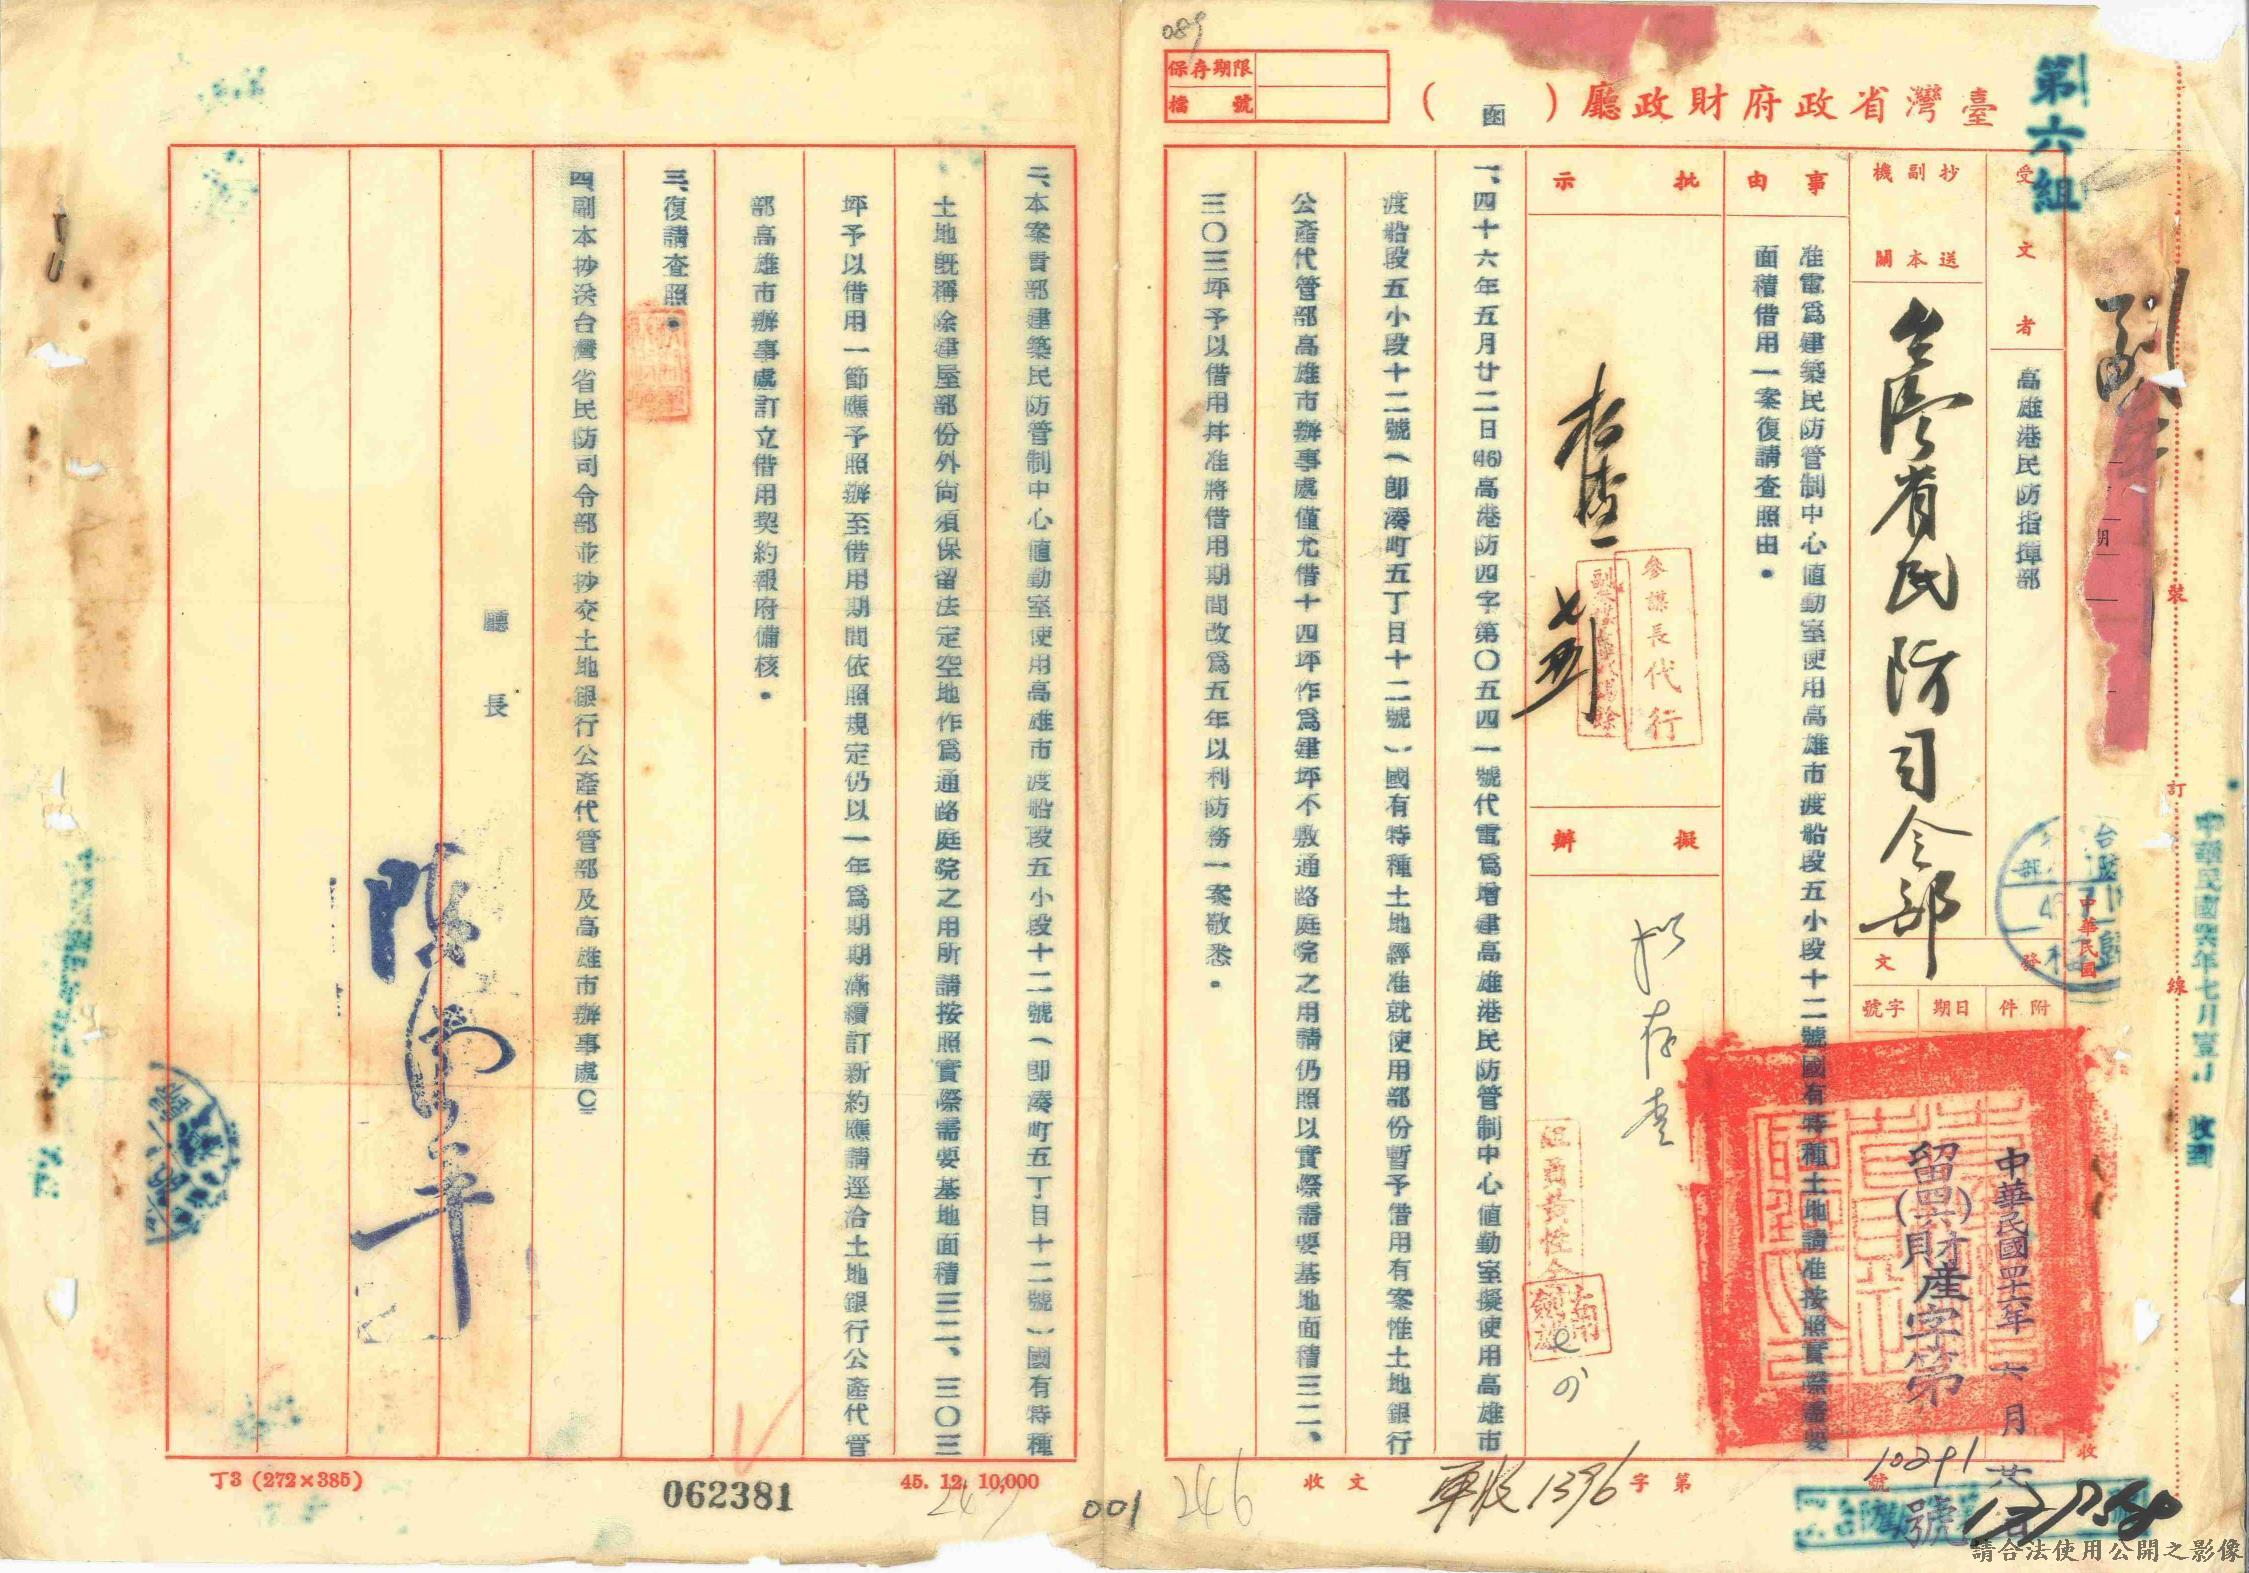 089
保存期限
檔號
臺灣省政府財政廳（函）
第六組
副本
受文者
高雄港民防指揮部
抄副機
送本關
台灣省民防司令部
發文
附件
日期
字號
中華民國四十六年六月廿日
留(四六)財產字第10291號
事由
准電為建築民防管制中心值勤室使用高雄市渡船段五小段十二號國有特種土地請准按照實際需要
面積借用一案復請查照由。
批示
參謀長代行
擬辦
擬存查
一、四十六年五月廿二日(46)高港防四字第〇五四一號代電為增建高雄港民防管制中心值勤室擬使用高雄市
渡船段五小段十二號（卽湊町五丁目十二號）國有特種土地經准就使用部份暫予借用有案惟土地銀行
公產代管部高雄市辦事處僅允借十四坪作為建坪不敷通路庭院之用請仍照以實際需要基地面積三二、
三〇三坪予以借用并准將借用期間改為五年以利防務一案敬悉。
收文
軍收1396
字第
號
裝
訂
線
中華民國四六年七月壹日收到
二、本案貴部建築民防管制中心值勤室使用高雄市渡船段五小段十二號（卽湊町五丁目十二號）國有特種
土地旣稱除建屋部份外尙須保留法定空地作為通路庭院之用所請按照實際需要基地面積三二、三〇三
坪予以借用一節應予照辦至借用期間依照規定仍以一年為期期滿續訂新約應請逕洽土地銀行公產代管
部高雄市辦事處訂立借用契約報府備核。
三、復請查照。
四、副本抄送台灣省民防司令部並抄交土地銀行公產代管部及高雄市辦事處〇
廳長
丁3 (272×385)
062381
45. 12. 10,000
247
001
246
請合法使用公開之影像